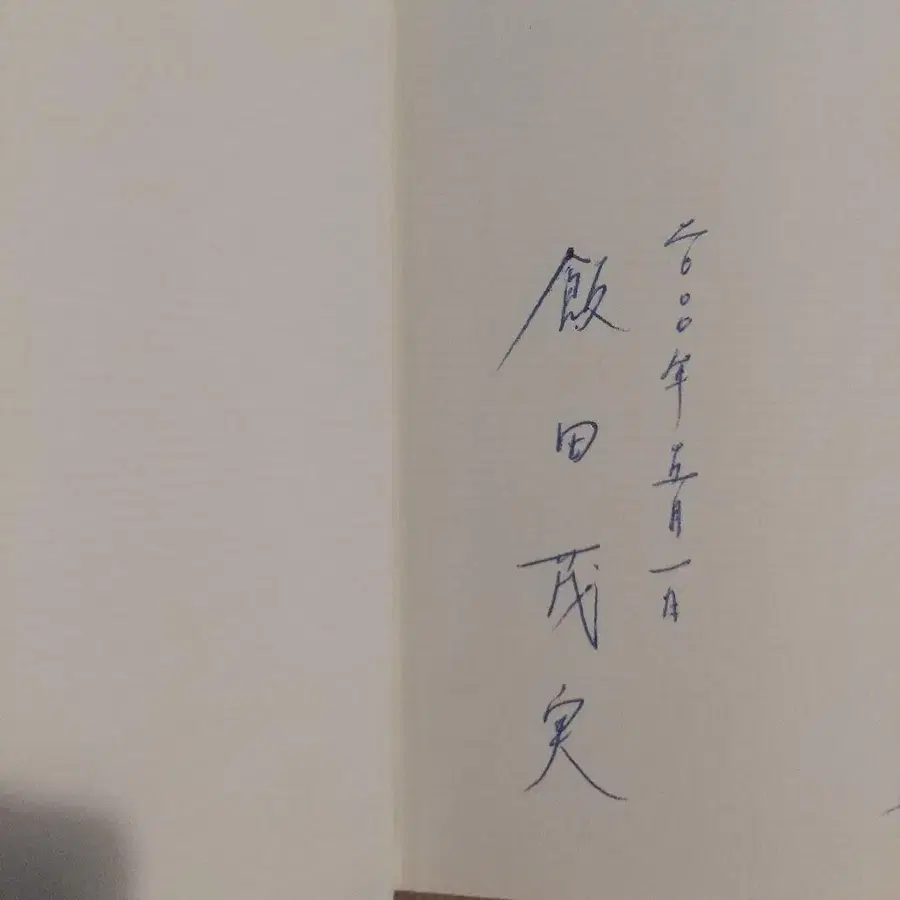 二〇〇〇年五月一日
飯田茂実